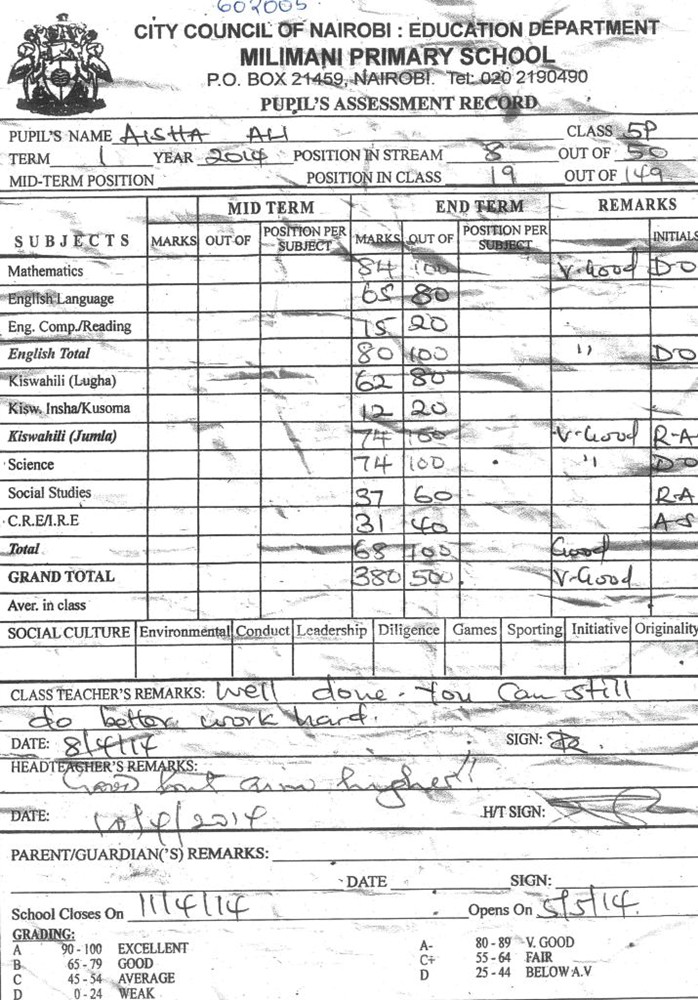 602005
CITY COUNCIL OF NAIROBI : EDUCATION DEPARTMENT
MILIMANI PRIMARY SCHOOL
P.O. BOX 21459, NAIROBI. Tel: 020 2190490
PUPIL'S ASSESSMENT RECORD
PUPIL'S NAME AISHA ALI CLASS 5P
TERM 1 YEAR 2014 POSITION IN STREAM 8 OUT OF 50
MID-TERM POSITION POSITION IN CLASS 19 OUT OF 149
MID TERM END TERM REMARKS
SUBJECTS MARKS OUT OF POSITION PER SUBJECT MARKS OUT OF POSITION PER SUBJECT INITIALS
Mathematics 84 100 V.Good DO
English Language 65 80
Eng. Comp./Reading 15 20
English Total 80 100 " DO
Kiswahili (Lugha) 62 80
Kisw. Insha/Kusoma 12 20
Kiswahili (Jumla) 74 100 V-Good R-A
Science 74 100 " DO
Social Studies 37 60 RA
C.R.E/I.R.E 31 40 AS
Total 68 100 Good
GRAND TOTAL 380 500 V-Good
Aver. in class
SOCIAL CULTURE Environmental Conduct Leadership Diligence Games Sporting Initiative Originality
CLASS TEACHER'S REMARKS: Well done. You can still
do better work hard.
DATE: 8/4/14 SIGN:
HEADTEACHER'S REMARKS:
Good but aim higher!!
DATE: 10/4/2014 H/T SIGN:
PARENT/GUARDIAN('S) REMARKS:
DATE SIGN:
School Closes On 11/4/14 Opens On 5/5/14.
GRADING:
A 90 - 100 EXCELLENT A- 80 - 89 V. GOOD
B 65 - 79 GOOD C+ 55 - 64 FAIR
C 45 - 54 AVERAGE D 25 - 44 BELOW A.V
D 0 - 24 WEAK